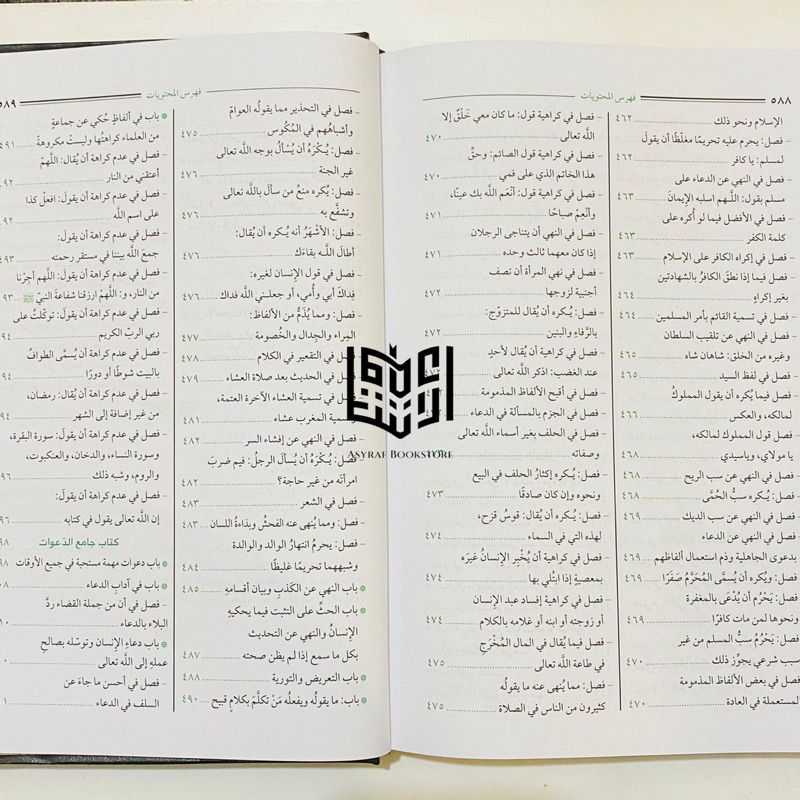 ٥٨٨
فهرس المحتويات
الإسلام ونحو ذلك ٤٦٢
- فصل: يحرم عليه تحريمًا مغلّظًا أن يقولَ
لمسلم: يا كافر ٤٦٢
- فصل في النهي عن الدعاء على
مسلم بقول: اللَّـهم اسلبه الإيمانَ ٤٦٣
- فصل في الأفضل فيما لو أُكره على
كلمة الكفر ٤٦٣
- فصل في إكراه الكافر على الإسلام ٤٦٣
- فصل فيما إذا نطقَ الكافرُ بالشهادتين
بغير إكراهٍ ٤٦٤
- فصل في تسمية القائم بأمر المسلمين ٤٦٤
- فصل في النهي عن تلقيب السلطان
وغيره من الخلق: شاهان شاه ٤٦٥
- فصل في لفظ السيد ٤٦٥
- فصل فيما يُكره أن يقول المملوكُ
لمالكه، والعكس ٤٦٦
- فصل قول المملوك لمالكه،
يا مولاي، وياسيدي ٤٦٨
- فصل في النهي عن سب الريح ٤٦٨
- فصل: يُكره سبُّ الحُمَّى ٤٦٨
- فصل في النهي عن سب الديك ٤٦٩
- فصل في النهي عن الدعاء
بدعوى الجاهلية وذم استعمال ألفاظهم ٤٦٩
- فصل: ويُكره أن يُسمَّى المُحَرَّمُ صَفَرًا ٤٦٩
- فصل: يَحْرُم أن يُدْعَى بالمغفرة
ونحوها لمن مات كافرًا ٤٦٩
- فصل: يَحْرُمُ سبُّ المسلم من غير
سبب شرعي يجوّز ذلك ٤٧٠
- فصل في بعض الألفاظ المذمومة
المستعملة في العادة ٤٧٠
- فصل في كراهية قول: ما كان معي خَلْقٌ إلا
اللَّه تعالى ٤٧٠
- فصل في كراهية قول الصائم: وحقِّ
هذا الخاتم الذي على فمي ٤٧٠
- فصل في كراهية قول: أنْعَم اللَّه بك عينًا،
وأنْعِمْ صباحًا ٤٧١
- فصل في النهي أن يتناجى الرجلان
إذا كان معهما ثالث وحده ٤٧١
- فصل في نهي المرأة أن تصف
أجنبية لزوجها ٤٧٢
- فصل: يُكره أن يُقال للمتزوّج:
بالرِّفاء والبنين ٤٧٢
- فصل في كراهية أن يُقال لأحدٍ
عند الغضب: اذكر اللَّه تعالى
- فصل في أقبح الألفاظ المذمومة
- فصل في الجزم بالمسألة في الدعاء
- فصل في الحلف بغير أسماء اللَّه تعالى
وصفاته
- فصل: يُكره إكثارُ الحلف في البيع
ونحوه وإن كان صادقًا ٤٧٣
- فصل: يُكره أن يُقال: قوسُ قزح،
لهذه التي في السماء ٤٧٤
- فصل في كراهية أن يُخْبِر الإنسانُ غيرَه
بمعصيةٍ إذا ابتُلي بها ٤٧٤
- فصل في كراهية إفساد عبد الإنسان
أو زوجته أو ابنه أو غلامه بالكلام ٤٧٤
- فصل فيما يُقال في المال المُخْرَج
في طاعة اللَّه تعالى ٤٧٥
- فصل: مما يُنهى عنه ما يقولُه
كثيرون من الناس في الصلاة ٤٧٥
٥٨٩
فهرس المحتويات
- فصل في التحذير مما يقولُه العوامّ
وأشباهُهم في المُكُوس ٤٧٥
- فصل: يُكْرَهُ أن يُسْأَلُ بوجه اللَّه تعالى
غير الجنة ٤٧٦
- فصل: يُكره منعُ من سأل باللَّه تعالى
وتشفَّع به ٤٧٦
- فصل: الأشْهَرُ أنه يُكره أن يُقال:
أطالَ اللَّـه بقاءَك ٤٧٦
- فصل في قول الإنسان لغيره:
فِداكَ أبي وأُمي، أو جعلـني اللَّه فداك ٤٧٦
- فصل: ومما يُذَمُّ من الألفاظ:
المِراء والجِدال والخُصومة ٤٧٧
- فصل في التقعير في الكلام ٤٧٨
- فصل في الحديث بعد صلاة العشاء ٤٧٩
- فصل في تسمية العشاء الآخرة العتمة،
وتسمية المغرب عشاء ٤٨١
- فصل في النهي عن إفشاء السر ٤٨٢
- فصل: يُكْرَهُ أن يُسألَ الرجلُ: فيم ضربَ
امرأته من غير حاجة؟ ٤٨٢
- فصل في الشعر ٤٨٣
- فصل: ومما يُنهى عنه الفحشُ وبذاءةُ اللسان ٤٨٣
- فصل: يحرمُ انتهارُ الوالد والوالدة
وشبههما تحريمًا غليظًا ٤٨٤
* باب النهي عن الكَذبِ وبيان أقسامِهِ ٤٨٥
* باب الحثِّ على التثبت فيما يحكيهِ
الإنسانُ والنهي عن التحديث
بكل ما سمع إذا لم يظن صحته ٤٨٧
* باب التعريض والتورية ٤٨٨
* باب: ما يقولُه ويفعلُه مَنْ تكلَّمَ بكلامٍ قبيح ٤٩٠
* باب في ألفاظٍ حُكي عن جماعةٍ
من العلماء كراهتُها وليستْ مكروهةً ٤٩١
- فصل في عدم كراهة أن يُقال: اللَّهمّ
أعتقني من النار
- فصل في عدم كراهة أن يقولَ: افعلْ كذا
على اسم اللَّه
- فصل في عدم كراهة أن يقولَ:
جمعَ اللَّه بيننا في مستقر رحمته
- فصل في عدم كراهة أن يقولَ: اللَّهم أجِرْنا
من النار، و: اللَّهمّ ارزقنا شفاعةَ النبيّ ﷺ
- فصل في عدم كراهة أن يقولَ: توكّلتُ على
ربي الربّ الكريم
- فصل في عدم كراهة أن يُسمَّى الطوافُ
بالبيت شوطًا أو دورًا
- فصل في عدم كراهة أن يُقال: رمضان،
من غير إضافة إلى الشهر
- فصل في عدم كراهة أن يقولَ: سورة البقرة،
وسورة النساء، والدخان، والعنكبوت،
والروم، وشبه ذلك
- فصل في عدم كراهة أن يقولَ:
إن اللَّه تعالى يقول في كتابه
كتابُ جامع الدَّعوات
* باب دعوات مهمة مستحبة في جميع الأوقات
* باب في آدابِ الدعاء
- فصل في أن من جملة القضاء ردَّ
البلاء بالدعاء
* باب دعاءِ الإنسان وتوسّله بصالحِ
عملهِ إلى اللَّه تعالى
- فصل في أحسن ما جاءَ عن
السلف في الدعاء
ASYRAF BOOKSTORE